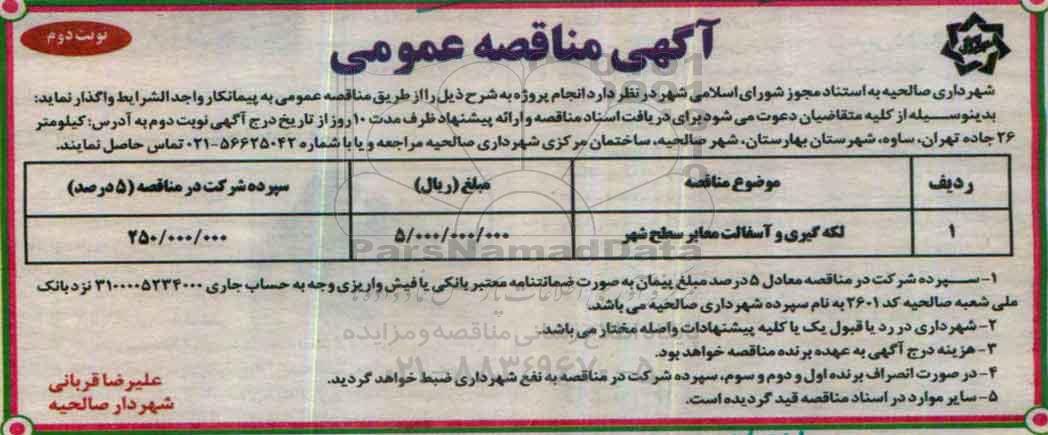 نوبت دوم
آگهی مناقصه عمومی
شهرداری صالحیه به استناد مجوز شورای اسلامی شهر در نظر دارد انجام پروژه به شرح ذیل را از طریق مناقصه عمومی به پیمانکار واجد الشرایط واگذار نماید:
بدینوسیله از کلیه متقاضیان دعوت می شود برای دریافت اسناد مناقصه و ارائه پیشنهاد ظرف مدت ۱۰ روز از تاریخ درج آگهی نوبت دوم به آدرس: کیلومتر
۲۶ جاده تهران، ساوه، شهرستان بهارستان، شهر صالحیه، ساختمان مرکزی شهرداری صالحیه مراجعه و یا با شماره ۵۶۶۲۵۰۴۲-۰۲۱ تماس حاصل نمایند.
ردیف موضوع مناقصه مبلغ (ریال) سپرده شرکت در مناقصه (۵ درصد)
۱ لکه گیری و آسفالت معابر سطح شهر ۵/۰۰۰/۰۰۰/۰۰۰ ۲۵۰/۰۰۰/۰۰۰
۱- سپرده شرکت در مناقصه معادل ۵ درصد مبلغ پیمان به صورت ضمانتنامه معتبر بانکی یا فیش واریزی وجه به حساب جاری ۳۱۰۰۰۰۵۲۳۴۰۰۰ نزد بانک
ملی شعبه صالحیه کد ۲۶۰۱ به نام سپرده شهرداری صالحیه می باشد.
۲- شهرداری در رد یا قبول یک یا کلیه پیشنهادات واصله مختار می باشد.
۳- هزینه درج آگهی به عهده برنده مناقصه خواهد بود.
۴- در صورت انصراف برنده اول و دوم و سوم، سپرده شرکت در مناقصه به نفع شهرداری ضبط خواهد گردید.
۵- سایر موارد در اسناد مناقصه قید گردیده است.
علیرضا قربانی
شهردار صالحیه
ParsNamadData